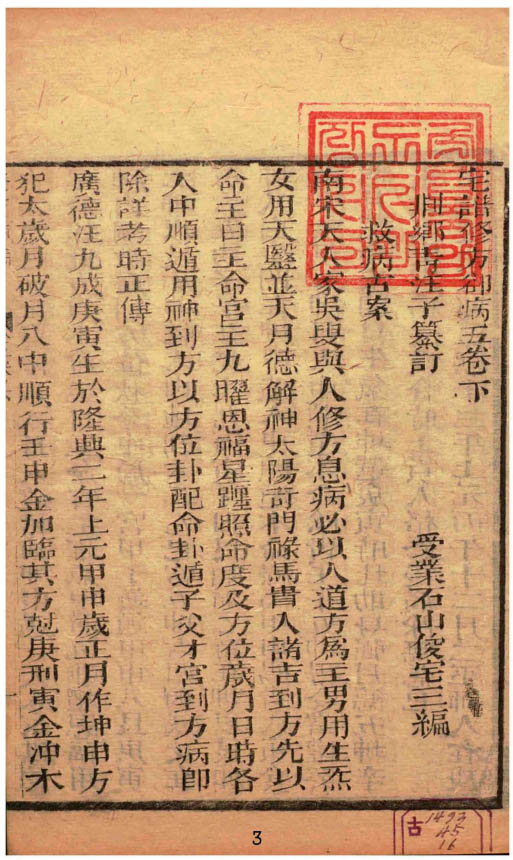 宅譜修方却病五卷下
鄉青江子纂訂 受業石山俊宅三編
救病古案
南宋大人家吳叟與人修方息病必以人道方爲主男用生炁
女用天毉並天月德解神太陽奇門祿馬貴人諸吉到方先以
命主日主命宮主九曜恩福星躔照命度及方位歲月日時各
入中順遁用神到方以方位卦配命卦遁子父才官到方病卽
除詳考時正傳
廣德汪九成庚寅生於隆興二年上元甲申歲正月作坤申方
犯太歲月破月入中順行壬申金加臨其方尅庚刑寅金沖木
古
1493
45
16
3